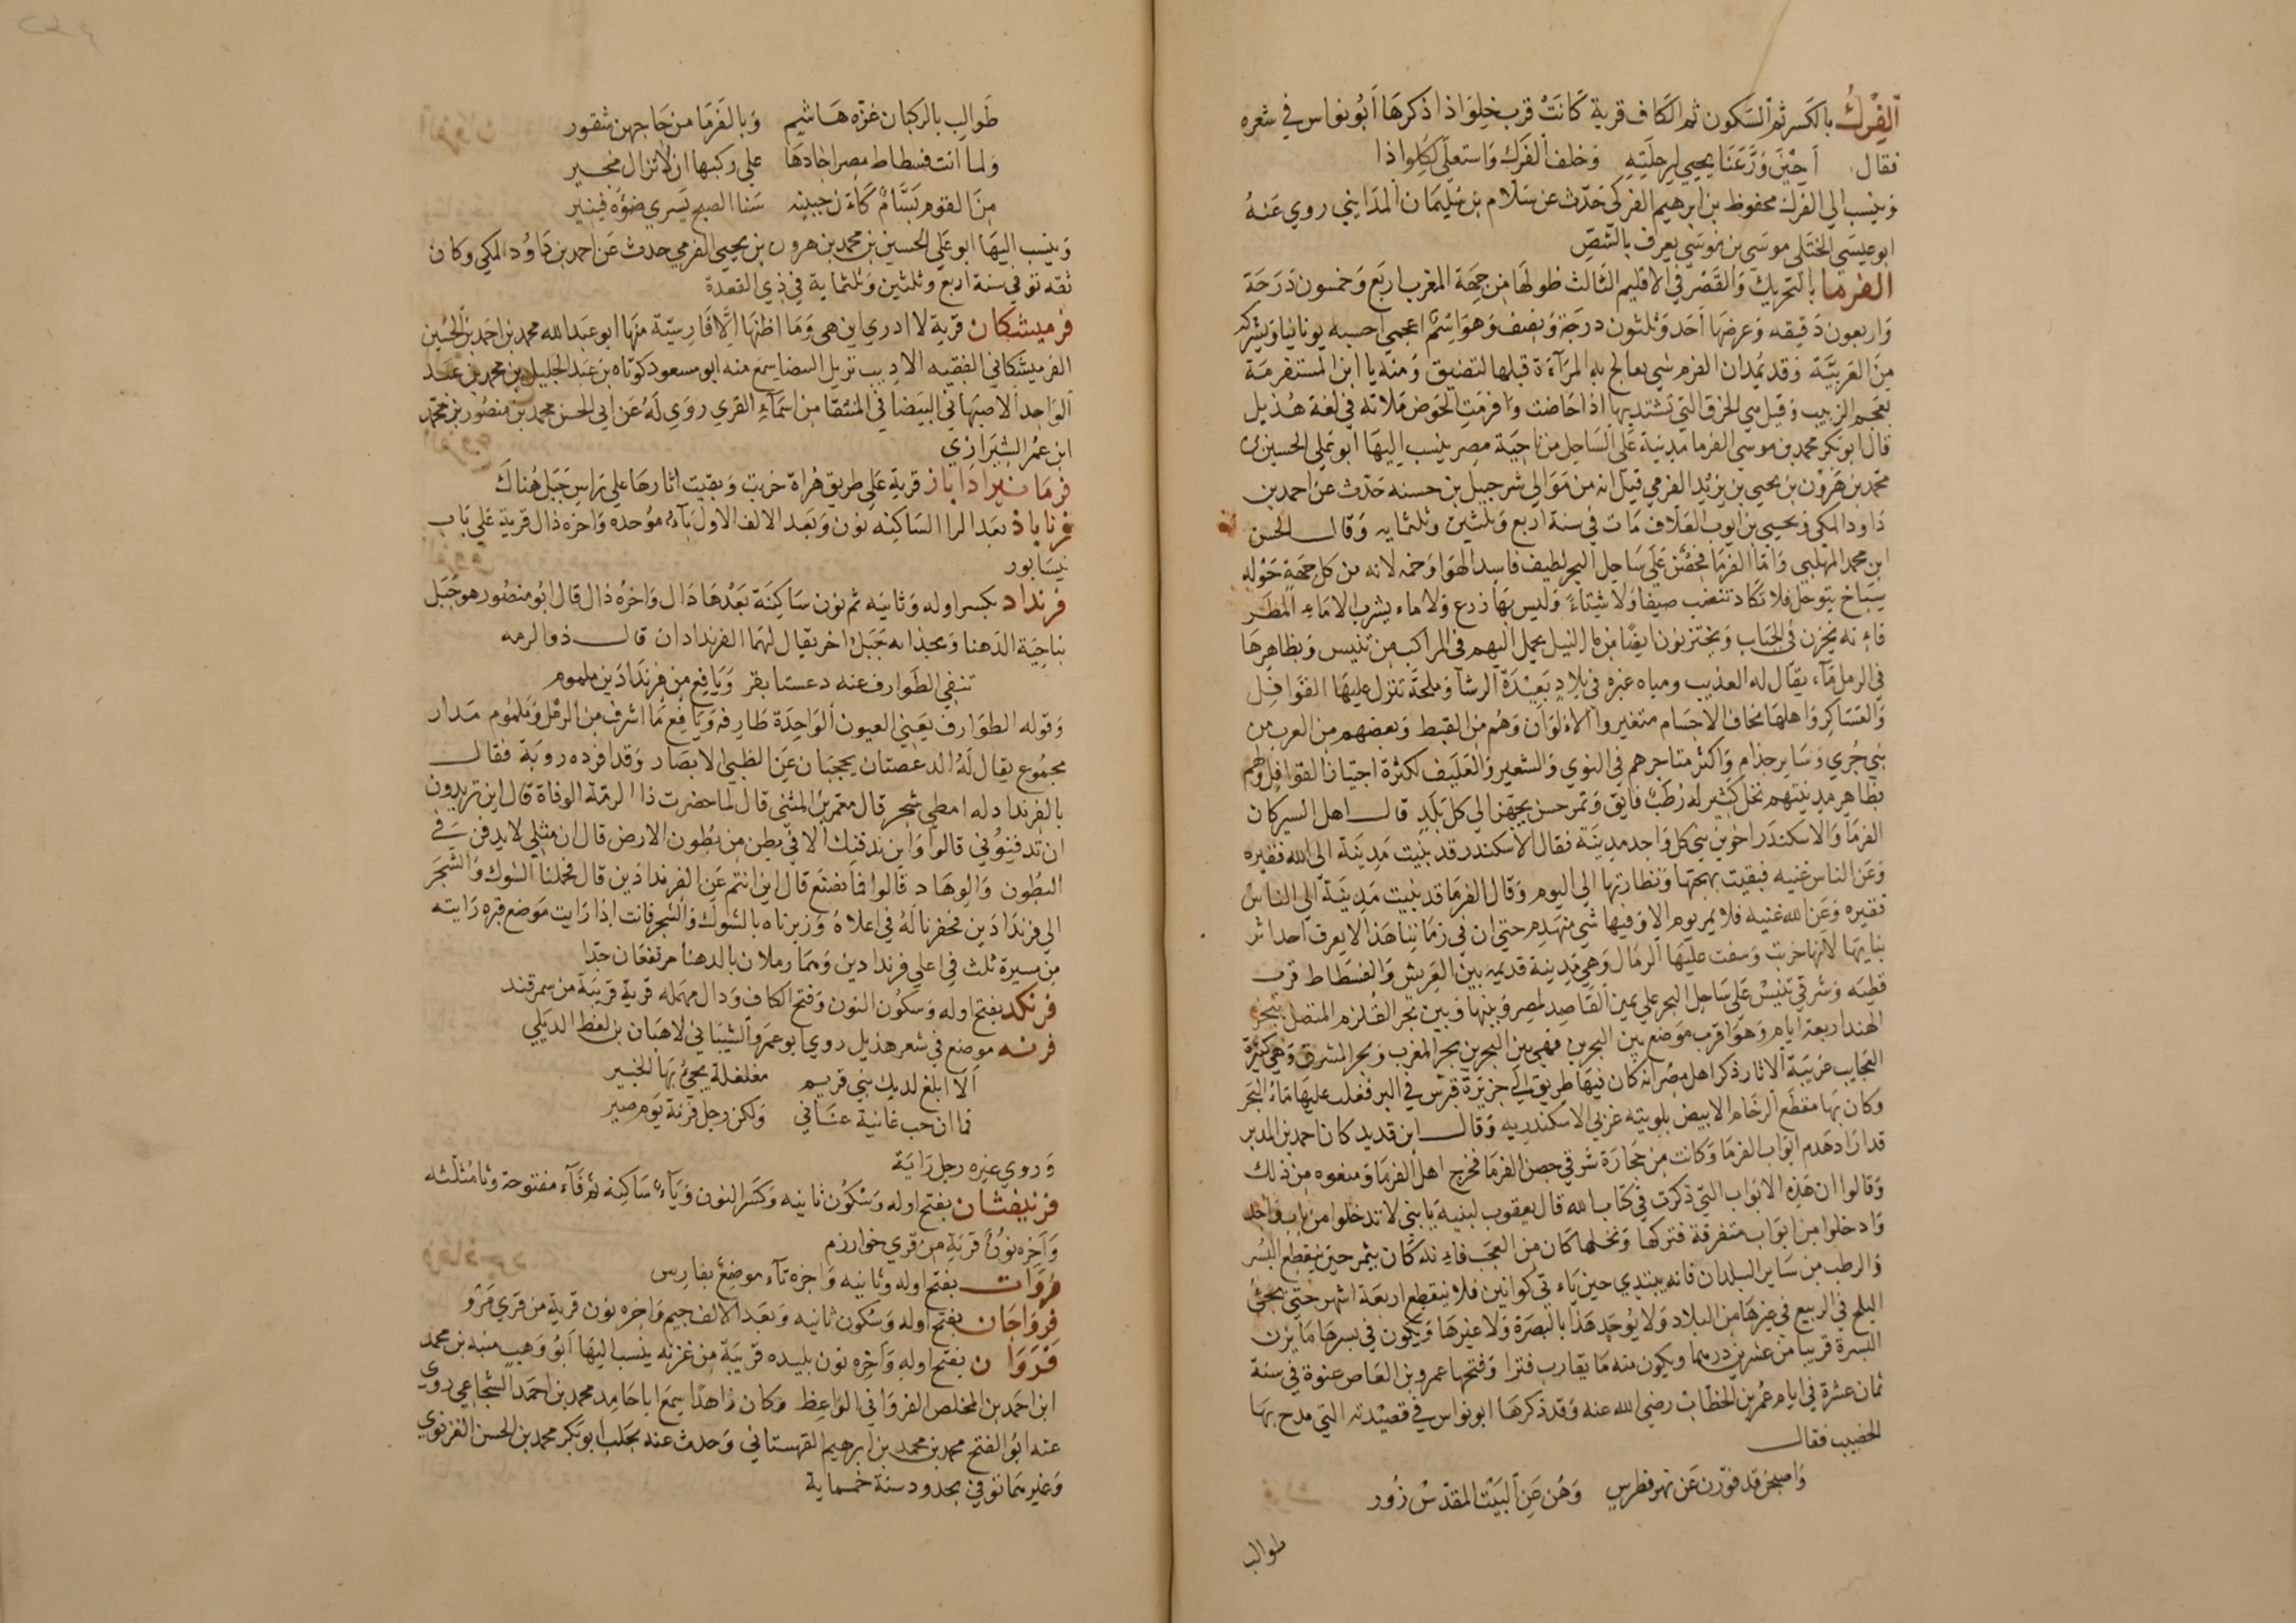 الفِرْكُ بالكسر ثم السكون ثم الكاف قرية كانت قرب خلواذا ذكرها أبو نواس في شعره
فقال احين ودعنا يحيي لرحلته وخلف الفرك واستعلى لكلواذا
وينسب الي الفرك محفوظ بن ابرهيم الفركي حدث عن سلام بن سليمان المدايني روي عنه
ابو عيسي الختلي موسي بن موسي يعرف بالشص
الفرما بالتحريك والقصر في الاقليم الثالث طولها من جهة المغرب اربع وخمسون درجة
واربعون دقيقه وعرضها احد وثلثون درجة ونصف وهو اسم اعجمي احسبه يونانيا ويشركه
من العربية وقد يمد ان الفرم شي يعالج به المرآءة قبلها لتضيق ومنه يا ابن المستفرمة
بعجم الزبيب وقيل هي الخرق التي تشتد بها اذا حاضت وافرمت الحوض ملاته في لغة هذيل
قال ابو بكر محمد بن موسي الفرما مدينة على الساحل من ناحية مصر ينسب اليها ابو علي الحسين بن
محمد بن هرون بن يحيي بن يزيد الفرمي قيل انه من موالي شرحبيل بن حسنه حدث عن احمد بن
داود المكي ويحيي بن ايوب العلاف مات في سنة اربع وثلثين وثلثمايه وقال الحسن
ابن محمد المهلبي واما الفرما فحصن على ساحل البحر لطيف فاسد الهوا وخمه لانه من كل جهة حوله
سباخ يتوحل فلا تكاد تنضب صيفا ولا شتاءً وليس بها زرع ولا ماء يشرب الا ماء المطر
فاءنه يخزن في الجباب ويختزنون ايضًا من ماء النيل يحمل اليهم في المراكب من تنيس وبظاهرها
في الرمل مآء يقال له العذيب ومياه غيره في بلاد بعيدة الرشآ وملحة تنزل عليها القوافل
والعساكر واهلها نحاف الاجسام متغيروا الالوان وهم من القبط وبعضهم من العرب من
بني جري وساير جذام واكثر متاجرهم في النوي والشعير والعليف لكثرة اجتيان القوافل ولهم
بظاهر مدينتهم نخل كثير له رطب فايق وتمر حسن يجهز الي كل بلد قال اهل السير كان
الفرما والاسكندر اخوين بني كل واحد مدينة فقال الاسكندر قد بنيت مدينة الي الله فقيره
وعن الناس غنيه فبقيت بهجتها ونضارتها الي اليوم وقال الفرما قد بنيت مدينة الي الناس
فقيره وعن الله غنيه فلا يمر يوم الا وفيها شي منهدم حتي ان في زماننا هذا لا يعرف احد اثر
بنايها لانها خربت وسفت عليها الرمال وهي مدينة قديمه بين العريش والفسطاط قرب
قطيه وشرقي تنيس على ساحل البحر علي يمين القاصد لمصر وبينها وبين بحر القلزم المتصل ببحر
الهند اربعة ايام وهو اقرب موضع بين البحرين فهي بين البحرين بحر المغرب وبحر المشرق وهي كثيرة
العجايب غريبة الاثار ذكر اهل مصر انه كان فيها طريق الي جزيرة قبرس في البر فغلب عليها ماء البحر
وكان بها مقطع الرخام الابيض بلوبيته غربي الاسكندريه وقال ابن قديد كان احمد بن المدبر
قد اراد هدم ابواب الفرما وكانت من حجارة شرقي حصن الفرما فخرج اهل الفرما ومنعوه من ذلك
وقالوا ان هذه الابواب التي ذكرت في كتاب الله قال يعقوب لبنيه يا بني لا تدخلوا من باب واحد
وادخلوا من ابواب متفرقة فتركها ونخلها كان من العجب فاءنه كان يثمر حين ينقطع البسر
والرطب من ساير البلدان فانه يبتدي حين ياء تي كوانين فلا ينقطع اربعة اشهر حتي يجئ
البلح في الربيع في غيرها من البلاد ولا يوجد هذا بالبصرة ولا غيرها ويكون في بسرها ما يزن
البسرة قريبا من عشرين درهما ويكون منه ما يقارب فترا وفتحها عمرو بن العاص عنوة في سنة
ثمان عشرة في ايام عمر بن الخطاب رضي الله عنه وقد ذكرها ابو نواس في قصيدته التي مدح بها
الخصيب فقال
واصبحن قد فوزن عن نهر فطرس وهن عن البيت المقدس زور
طوالب
طوالب بالركبان غزه هاشم وبالفرما من حاجهن شقور
ولما اتت فسطاط مصر اجادها علي ركبها ان لا تزال مجير
من القوم بسام كاءن جبينه سنا الصبح يسري ضوءه فينير
وينسب اليها ابو علي الحسين بن محمد بن هرون بن يحيي الفرمي حدث عن احمد بن داود المكي وكان
ثقه توفي سنة اربع وثلثين وثلثماية في ذي القعدة
فرميشكان قرية لا ادري اين هي وما اظنها الا فارسية منها ابو عبد الله محمد بن احمد بن الحسين
الفرميشكاني الفقيه الاديب نزيل البيضا سمع منه ابو مسعود كوتاه بن عبد الجليل بن محمد بن عبد
الواحد الاصبهاني البيضا في المنتقا من اسماء القري روي له عن ابي الحسن محمد بن منصور بن محمد
ابن عمر الشيرازي
فرمانيراداباز قرية علي طريق هراة خربت وبقيت اثارها علي راس جبل هناك
فرناباذ بعد الرا الساكنه نون وبعد الالف الاول باء موحده واخره ذال قرية علي باب
نيسابور
فرنداد بكسر اوله وثانيه ثم نون ساكنة بعدها دال واخره ذال قال ابو منصور هو جبل
بناحية الدهنا وبحذايه جبل اخر يقال لهما الفرندادان قال ذو الرمه
تنفي الطوارف عنه دعصتا بقر ويافع من فرندادين ملموم
وقوله الطوارف يعني العيون الواحدة طارفه ويافع ما اشرف من الرمل وملموم مدار
مجموع يقال له الدعصتان يحجبان عن الظبي الابصار وقد افرده روبة فقال
بالفرنداد له امطي شجر قال معمر بن المثني قال لما حضرت ذا الرمة الوفاة قال اين تريدون
ان تدفنوني قالوا واين ندفنك الا في بطن من بطون الارض قال ان مثلي لا يدفن في
البطون والوهاد قالوا فانصنع قال اين انتم عن الفرندادين قال فحملنا الشوك والشجر
الي فرندادين فحفرنا له في اعلاه وزبرناه بالشوك والشجر فانت اذا رايت موضع قبره رايته
من مسيرة ثلث في اعلي فرندادين وهما رملان بالدهنا مرتفعان جدا
فرنكد بفتح اوله وسكون النون وفتح الكاف ودال مهمله قرية قريبة من سمرقند
فرنه موضع في شعر هذيل روي ابو عمرو الشيباني لاهبان بن لغط الديلي
الا ابلغ لديك بني قريم مغلغلة يجئ بها الخبير
فما ان حب غانية عناني ولكن رجل فرنة يوم صير
وروي غيره رجل راية
فرنيفثان بفتح اوله وسكون ثانيه وكسر النون وياء ساكنه ثم فآء مفتوحة وثا مثلثه
وآخره نون قرية من قري خوارزم
فروات بفتح اوله وثانيه واخره تآء موضع بفارس
فرواجان بفتح اوله وسكون ثانيه وبعد الالف جيم واخره نون قرية من قري مرو
فروان بفتح اوله وآخره نون بليده قريبة من غزنه ينسب اليها ابو وهب منبه بن محمد
ابن احمد بن المخلص الفرواني الواعظ وكان زاهدا سمع ابا حامد محمد بن احمد الشجاعي روي
عنه ابو الفتح محمد بن محمد بن ابرهيم القهستاني وحدث عنه بحلب ابو بكر محمد بن الحسن الغزنوي
وغيرهما توفي بحدود سنة خمسماية